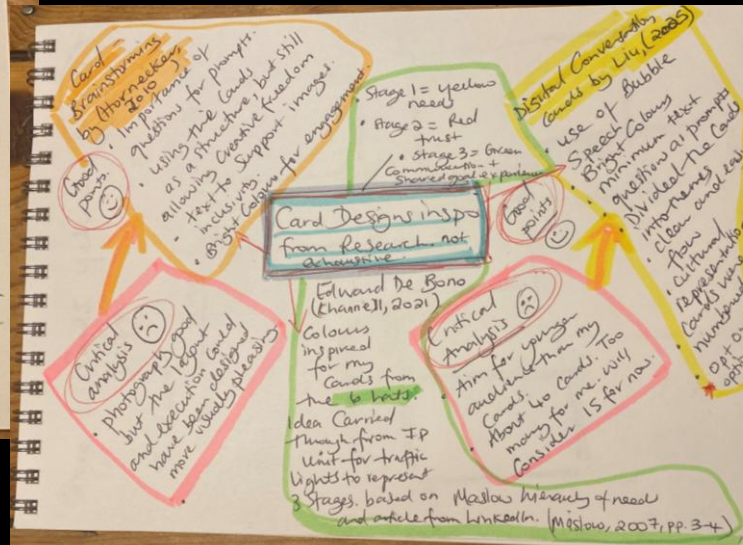 Card
Brainstorming
by (Hornecker,
2010)
• Importance of
question for prompts.
• using the cards
as a structure, but still
allowing creative freedom
• text to support images.
• inclusivity.
• Bright Colours for engagement.
Good
points.
Critical
analysis
• photography good
but the layout
and execution could
have been designed
more visually pleasing.
• Stage 1 = yellow
need
• Stage 2 = Red
trust
• Stage 3 = Green
Communication +
shared goal experience
Card Designs inspo
from Research. not
exhaustive.
Edward De Bono
(Channell, 2021)
Colours
inspired
for my
Cards from
the 6 hats.
Idea Carried
through from IP
Unit for traffic
lights to represent
3 Stages. based on Maslow hierarchy of need
and article from LinkedIn. (Maslow, 2007, pp. 3-4)
Good
points
Critical
Analysis
• Aim for younger
audience than my
Cards.
About 40 Cards. Too
many for me. will
Consider 15 for now.
Digital Conversation
Cards by Liu, (2025)
• use of Bubble
Speech
• Bright Colours
• minimum text
• question as prompts
• Divided the Cards
into themes
• clean and
flow
• Cultural
Cards were
numbered